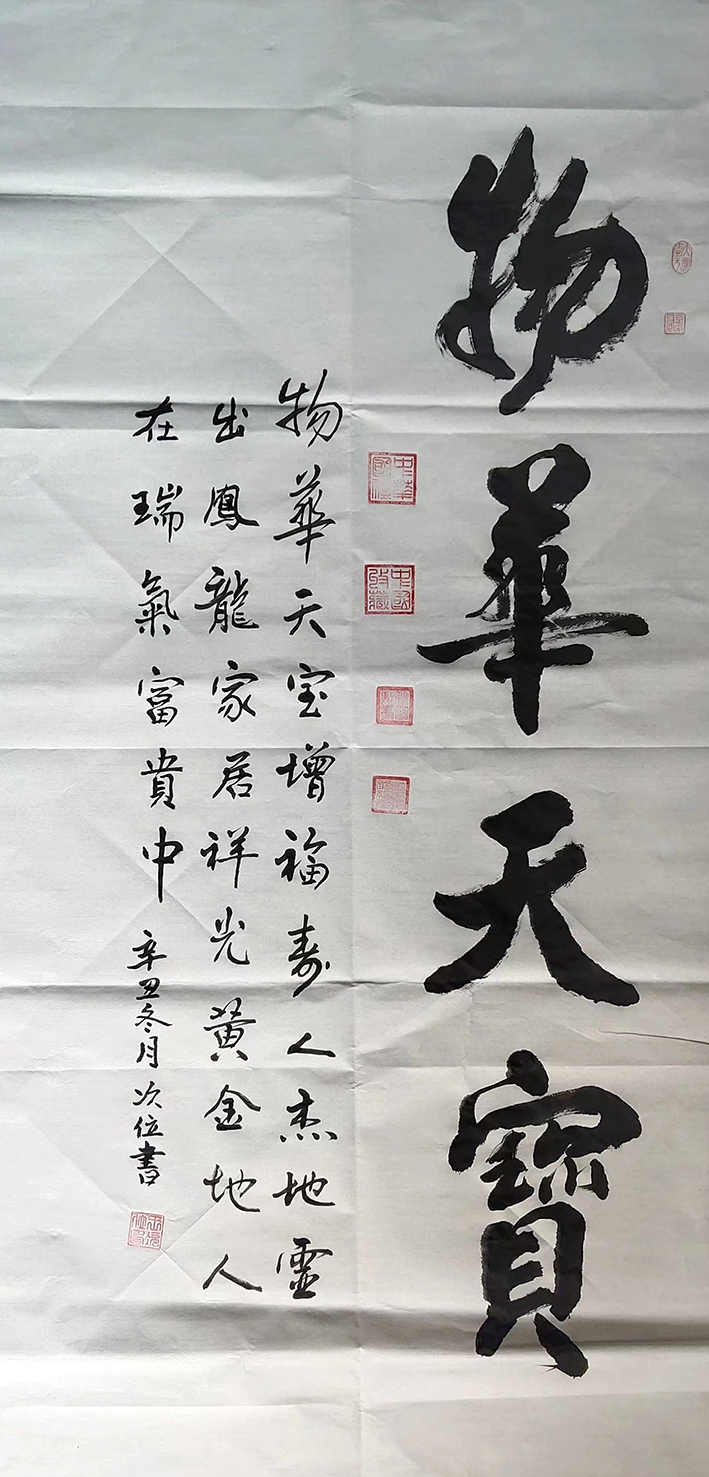 物華天寶
物華天宝增福寿人杰地靈
出鳳龍家居祥光黃金地人
在瑞氣富貴中
辛丑冬月次位書